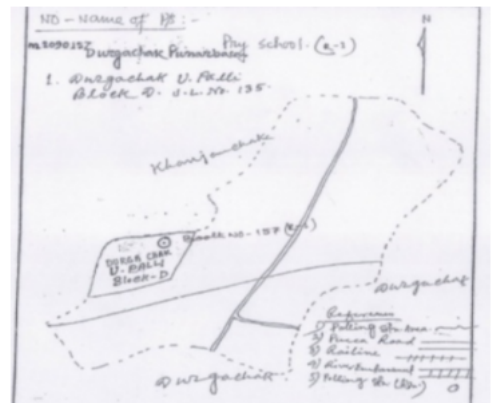 NO - Name of PS :-
Durgachak Punarbasan Pry School. (R-1)
1. Durgachak U. Palli
Block D. J.L. No. 135.
N
Khanjanchak
Booth No - 157 (R-1)
DURGA CHAK
U-PALLI
Block-D
Durgachak
Durgachak
Reference
1) Polling Station
2) Pucca Road
3) Railine
4) River Embankment
5) Polling Stn